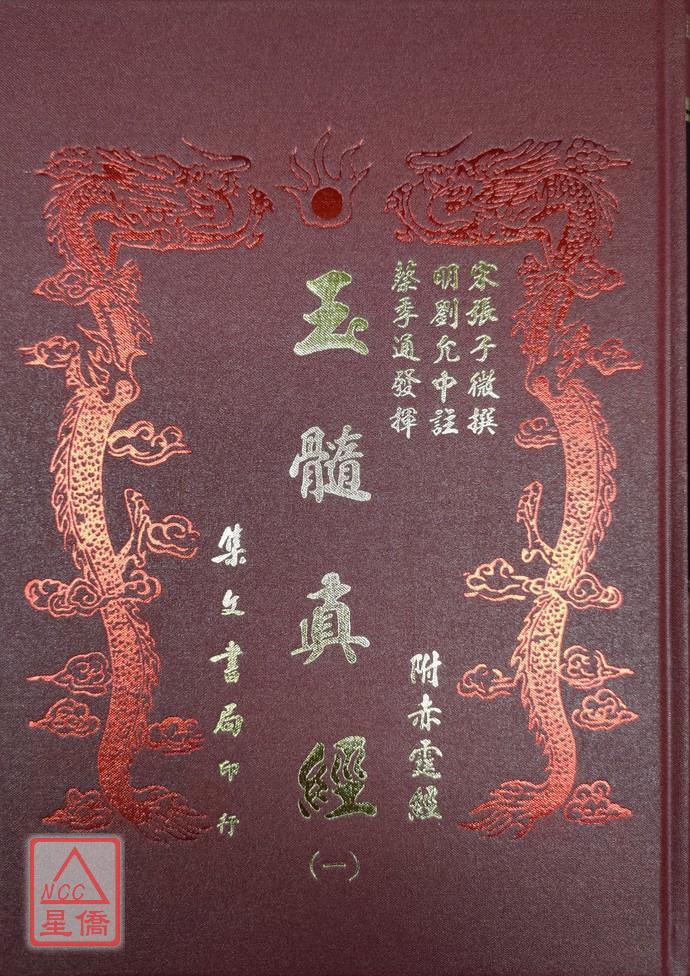 宋張子微撰
明劉允中註
蔡季通發揮
附赤霆經
玉髓真經
(一)
集文書局印行
NCC
星僑